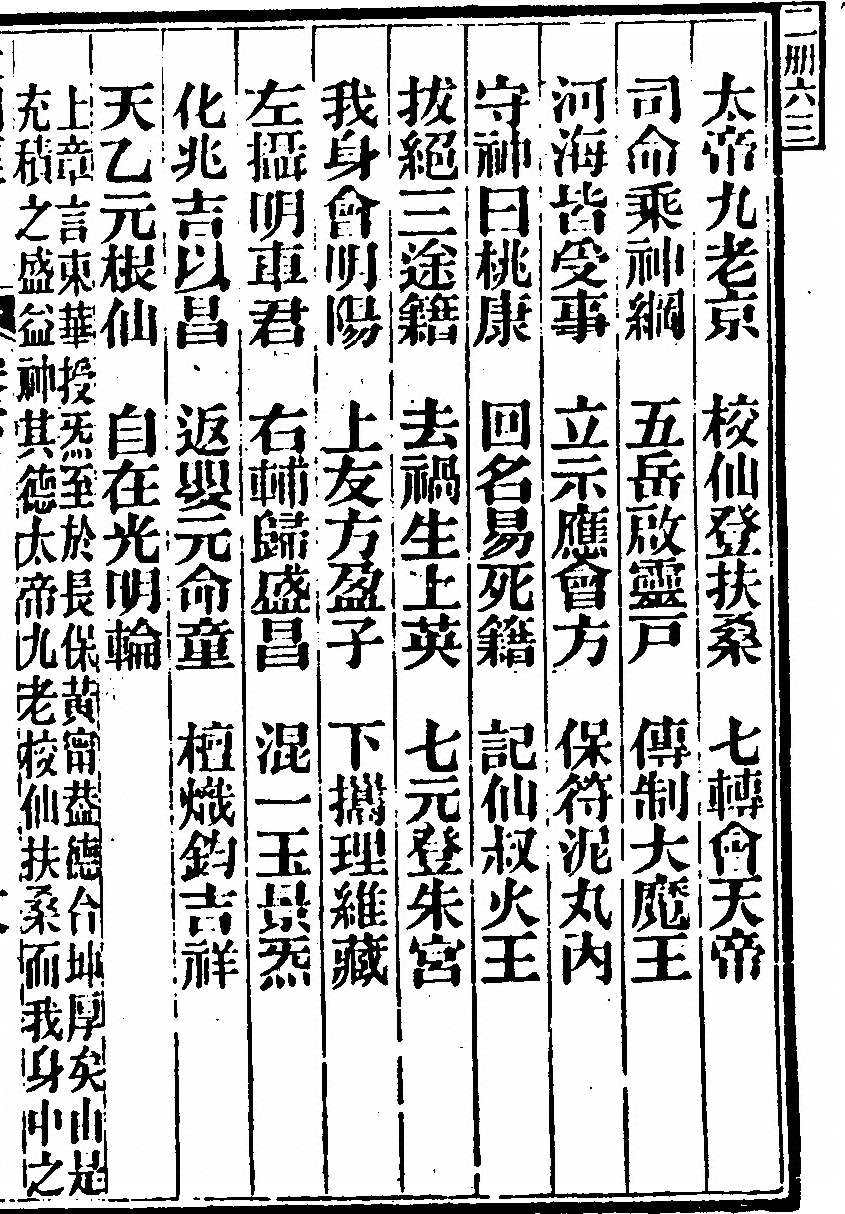 二册六三
太帝九老京　校仙登扶桑　七轉會天帝
司命乘神綱　五岳啟靈戸　傳制大魔王
河海皆受事　立示應會方　保符泥丸内
守神曰桃康　回名易死籍　記仙叔火王
拔絕三途籍　去禍生上英　七元登朱宮
我身會明陽　上友方盈子　下攜理維藏
左攝明車君　右輔歸盛昌　混一玉景炁
化兆吉以昌　返嬰元命童　檀熾鈞吉祥
天乙元根仙　自在光明輪
上章言東華授炁至於長保黃甯益德合坤厚矣由是
充積之盛益神其德太帝九老校仙扶桑而我身中之